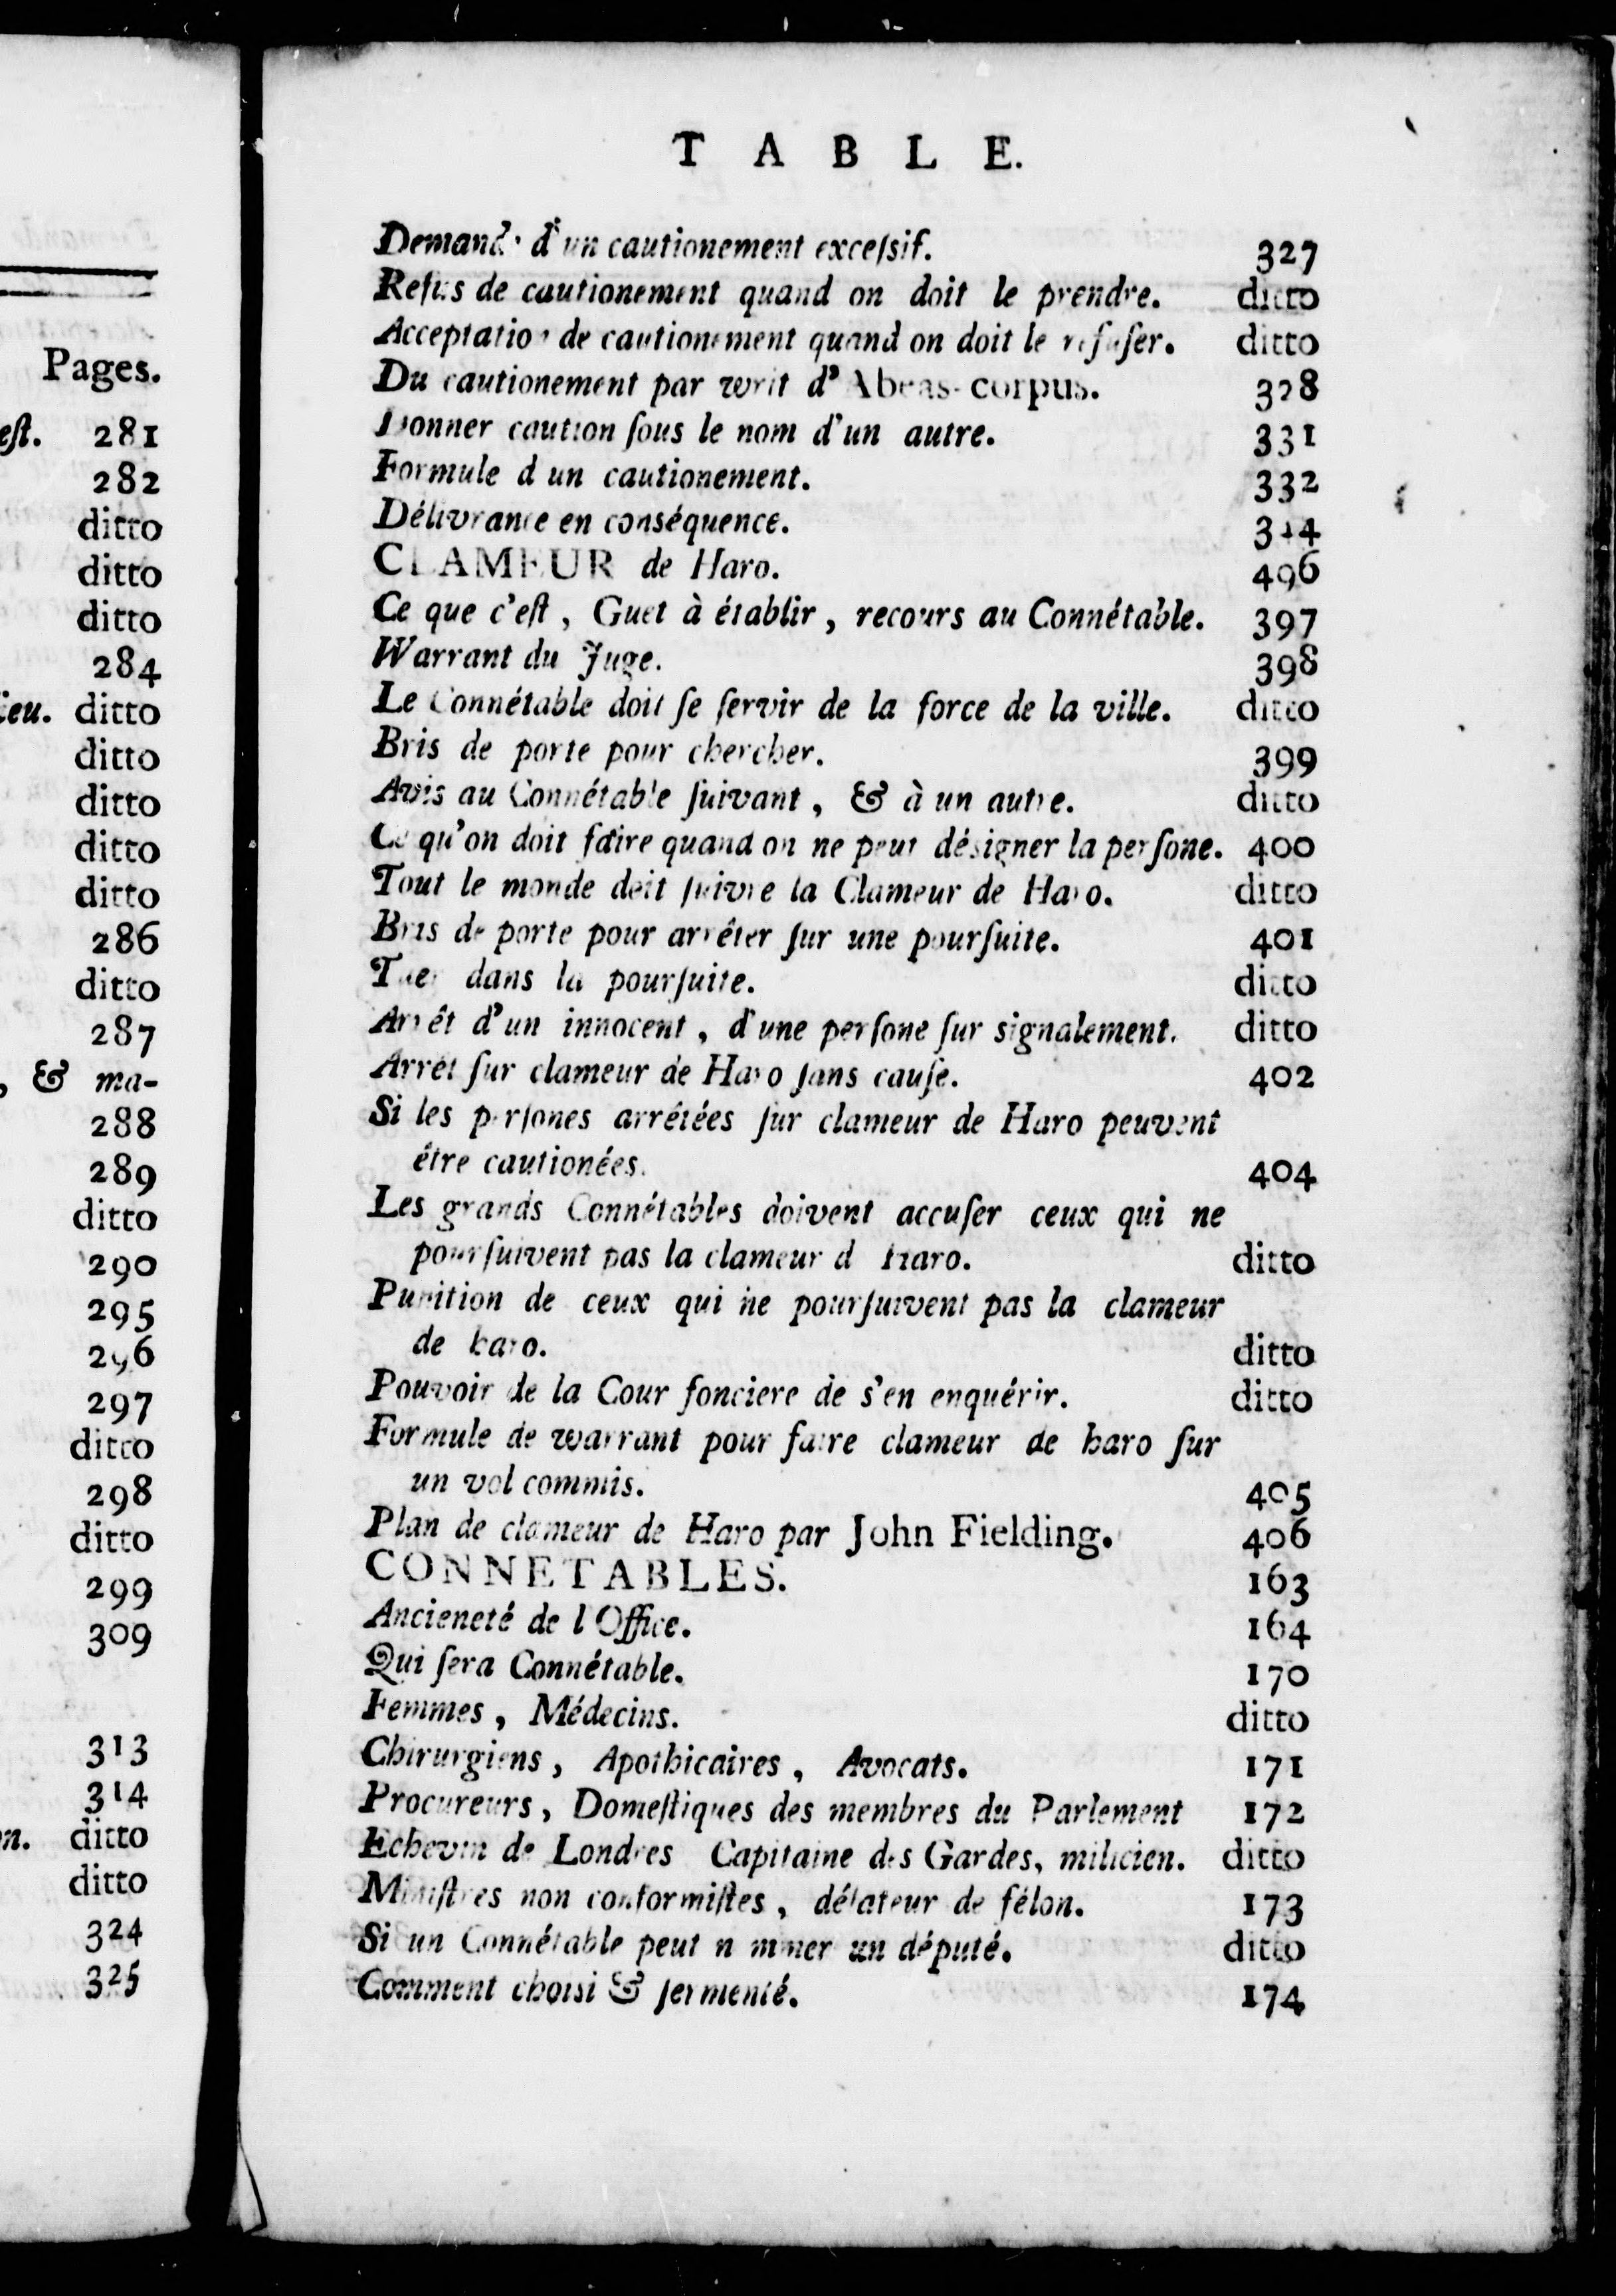 Pages.
est. 281
282
ditto
ditto
ditto
284
ieu. ditto
ditto
ditto
ditto
ditto
286
ditto
287
, & ma-
288
289
ditto
290
295
296
297
ditto
298
ditto
299
309
313
314
n. ditto
ditto
324
325
T A B L E.
Demande d'un cautionement exceſsif. 327
Refus de cautionement quand on doit le prendre. ditto
Acceptation de cautionement quand on doit le refuſer. ditto
Du cautionement par writ d'Abeas-corpus. 328
Donner caution ſous le nom d'un autre. 331
Formule d un cautionement. 332
Délivrance en conséquence.
CLAMEUR de Haro. 496
Ce que c'eſt, Guet à établir, recours au Connétable. 397
Warrant du Juge. 398
Le Connétable doit ſe ſervir de la force de la ville. ditto
Bris de porte pour chercher. 399
Avis au Connétable ſuivant, & à un autre. ditto
Ce qu'on doit faire quand on ne peut désigner la perſone. 400
Tout le monde doit ſuivre la Clameur de Haro. ditto
Bris de porte pour arrêter ſur une pourſuite. 401
Tuer dans la pourſuite. ditto
Arrêt d'un innocent, d'une perſone ſur signalement. ditto
Arrêt ſur clameur de Haro ſans cauſe. 402
Si les perſones arrétées ſur clameur de Haro peuvent
être cautionées. 404
Les grands Connétables doivent accuſer ceux qui ne
pourſuivent pas la clameur d Haro. ditto
Punition de ceux qui ne pourſuivent pas la clameur
de haro. ditto
Pouvoir de la Cour fonciere de s'en enquérir. ditto
Formule de warrant pour faire clameur de haro ſur
un vol commis. 405
Plan de clameur de Haro par John Fielding. 406
CONNETABLES. 163
Ancieneté de l Office. 164
Qui ſera Connétable. 170
Femmes, Médecins. ditto
Chirurgiens, Apothicaires, Avocats. 171
Procureurs, Domeſtiques des membres du Parlement 172
Echevin de Londres Capitaine des Gardes, milicien. ditto
Miniſtres non conformiſtes, délateur de félon. 173
Si un Connétable peut nommer un député. ditto
Comment choisi & ſermenté. 174